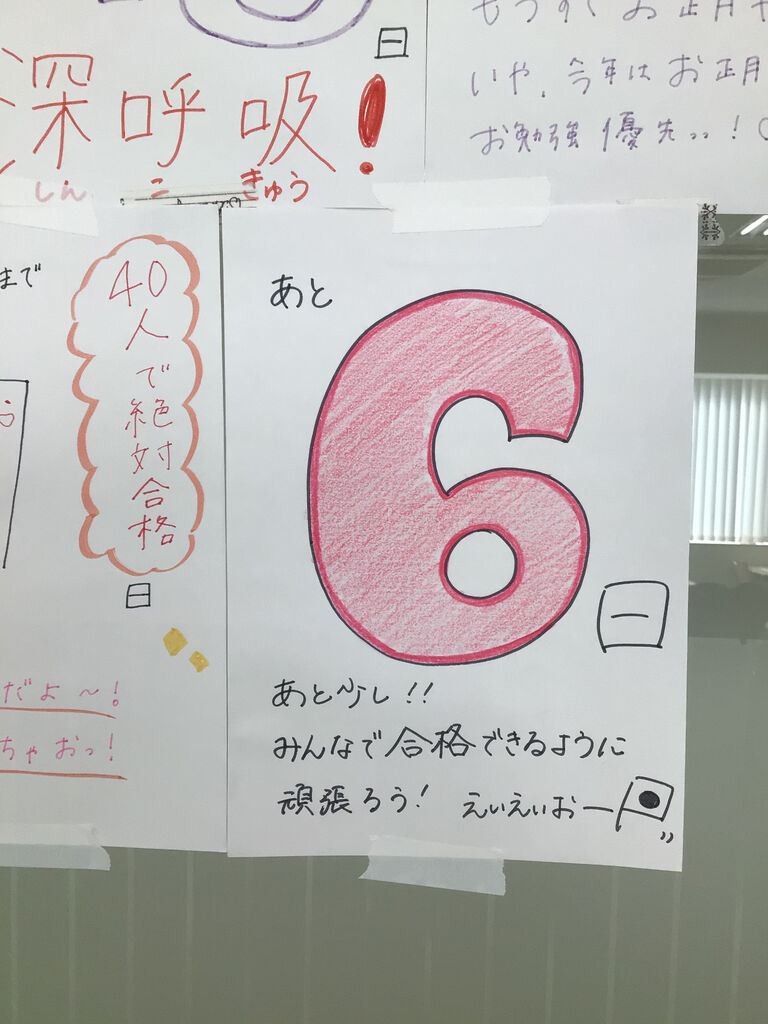 日
深呼吸!
しんこきゅう
もうすぐお正月
いや、今年はお正月
お勉強優先〃!♡
まで
40人で絶対合格
日
だよ〜!
ちゃおっ!
あと
6
日
あと少し!!
みんなで合格できるように
頑張ろう! えいえいおー